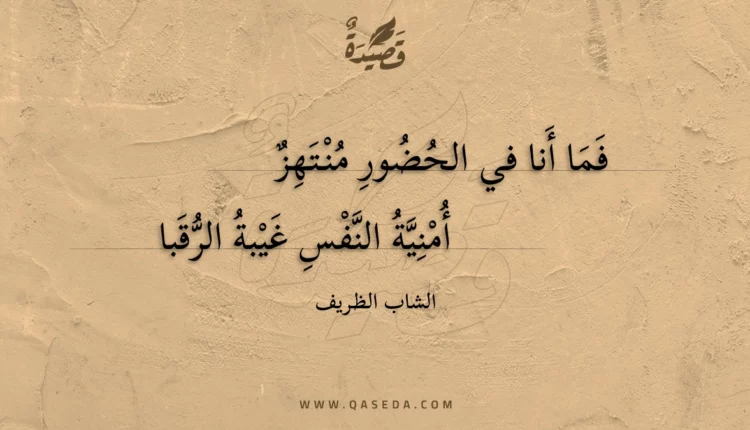 قَصِيدَةٌ
فَمَا أَنا في الحُضُورِ مُنْتَهِزٌ
أُمْنِيَّةُ النَّفْسِ غَيْبةُ الرُّقَبا
الشاب الظريف
WWW.QASEDA.COM